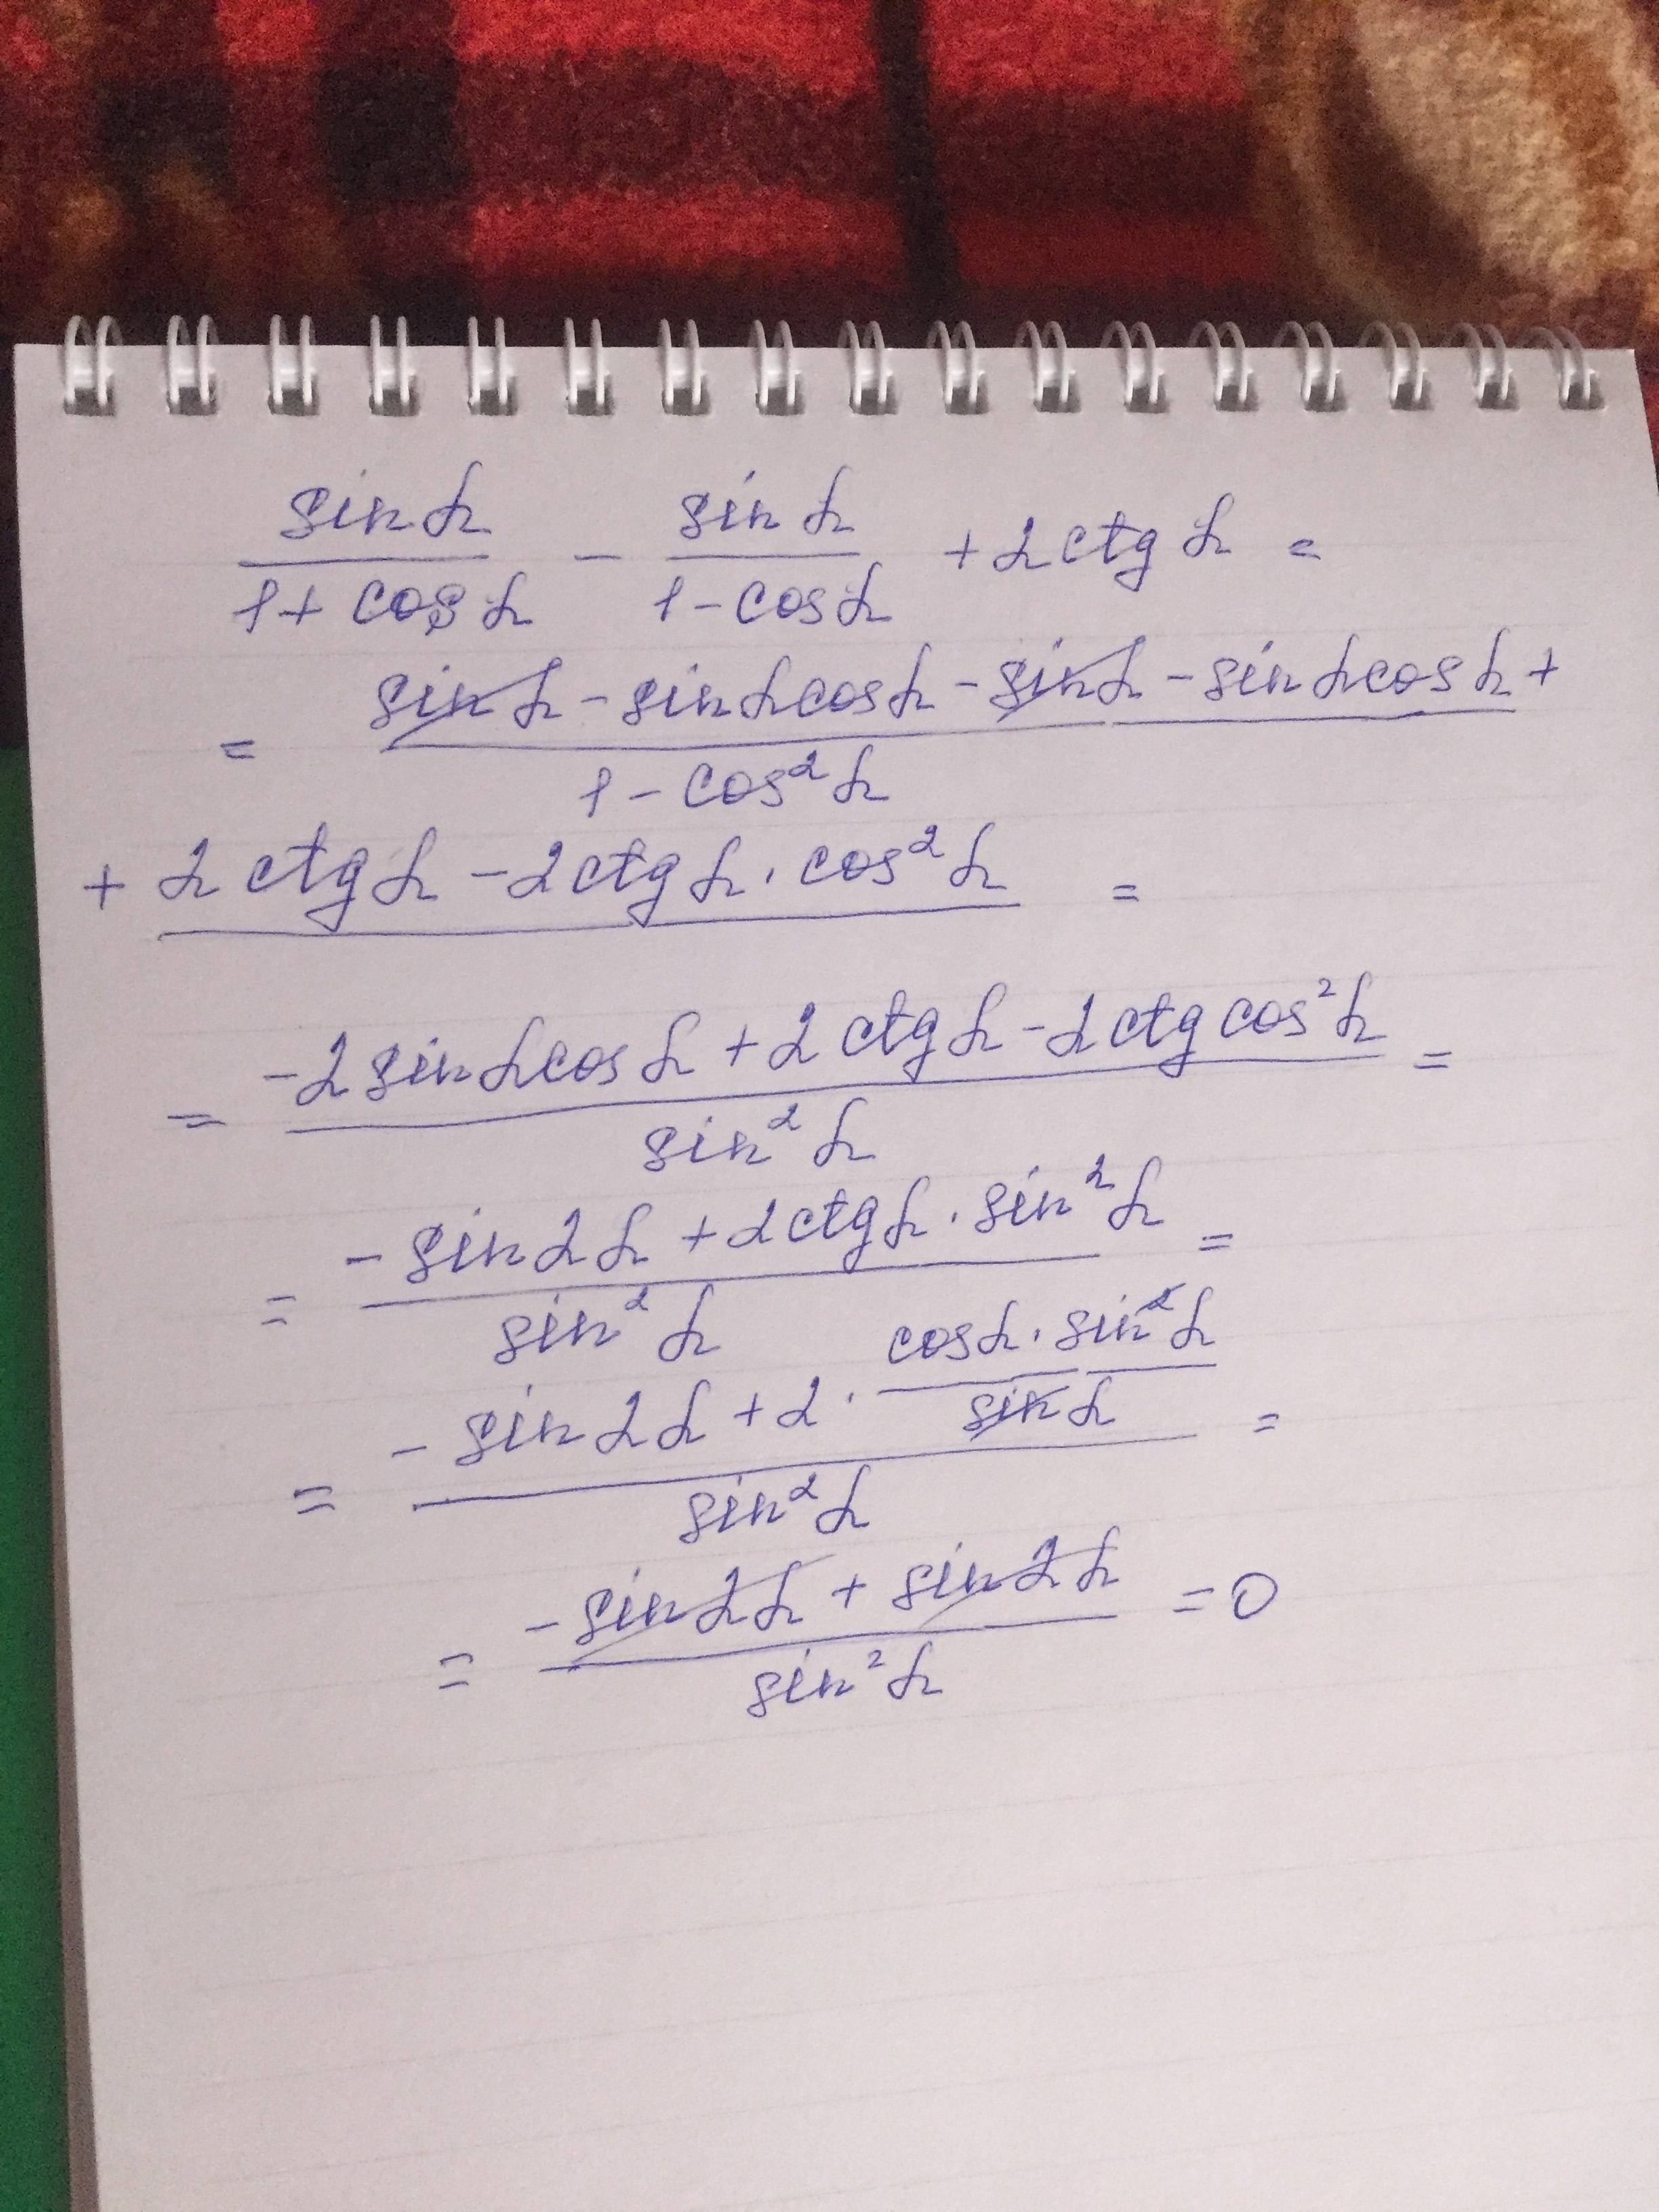 sin α / 1 + cos α − sin α / 1 − cos α + 2 ctg α =
= sin α − sin α cos α − sin α − sin α cos α + / 1 − cos² α
+ 2 ctg α − 2 ctg α · cos² α =
= −2 sin α cos α + 2 ctg α − 2 ctg cos² α / sin² α =
= − sin 2α + 2 ctg α · sin² α / sin² α =
= − sin 2α + 2 · cos α · sin² α / sin α / sin² α =
= − sin 2α + sin 2α / sin² α = 0